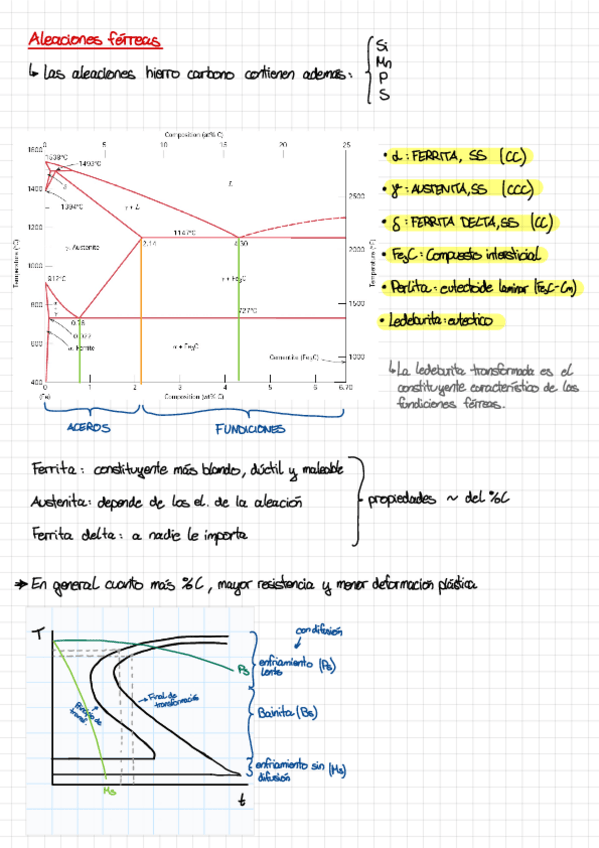 Aleaciones férreas
↳ Las aleaciones hierro carbono contienen además:
Si
Mn
P
S
Composition (at% C)
0 5 10 15 20 25
1600
1538°C
1493°C
L
1400
δ
1394°C
2500
γ + L
1200
1147°C
2.14
4.30
γ, Austenite
2000
1000
912°C
γ + Fe₃C
800
727°C
1500
0.76
0.022
600
α, Ferrite
α + Fe₃C
Cementite (Fe₃C)
1000
400
0 1 2 3 4 5 6 6.70
(Fe)
Composition (wt% C)
Temperature (°C)
Temperature (°F)
ACEROS
FUNDICIONES
• α : FERRITA, SS (CC)
• γ : AUSTENITA, SS (CCC)
• δ : FERRITA DELTA, SS (CC)
• Fe₃C : Compuesto intersticial
• Perlita : eutectoide laminar (Fe₃C-Cm)
• Ledeburita : eutéctico
↳ La ledeburita transformada es el
constituyente característico de las
fundiciones férreas.
Ferrita : constituyente más blando, dúctil y maleable
Austenita : depende de los el. de la aleación
Ferrita delta : a nadie le importa
propiedades ~ del %C
→ En general cuanto más %C, mayor resistencia y menor deformación plástica
T
con difusión
Ps
enfriamiento (Ps)
lento
Final de
transformación
Bainita (Bs)
enfriamiento sin (Ms)
difusión
Ms
t